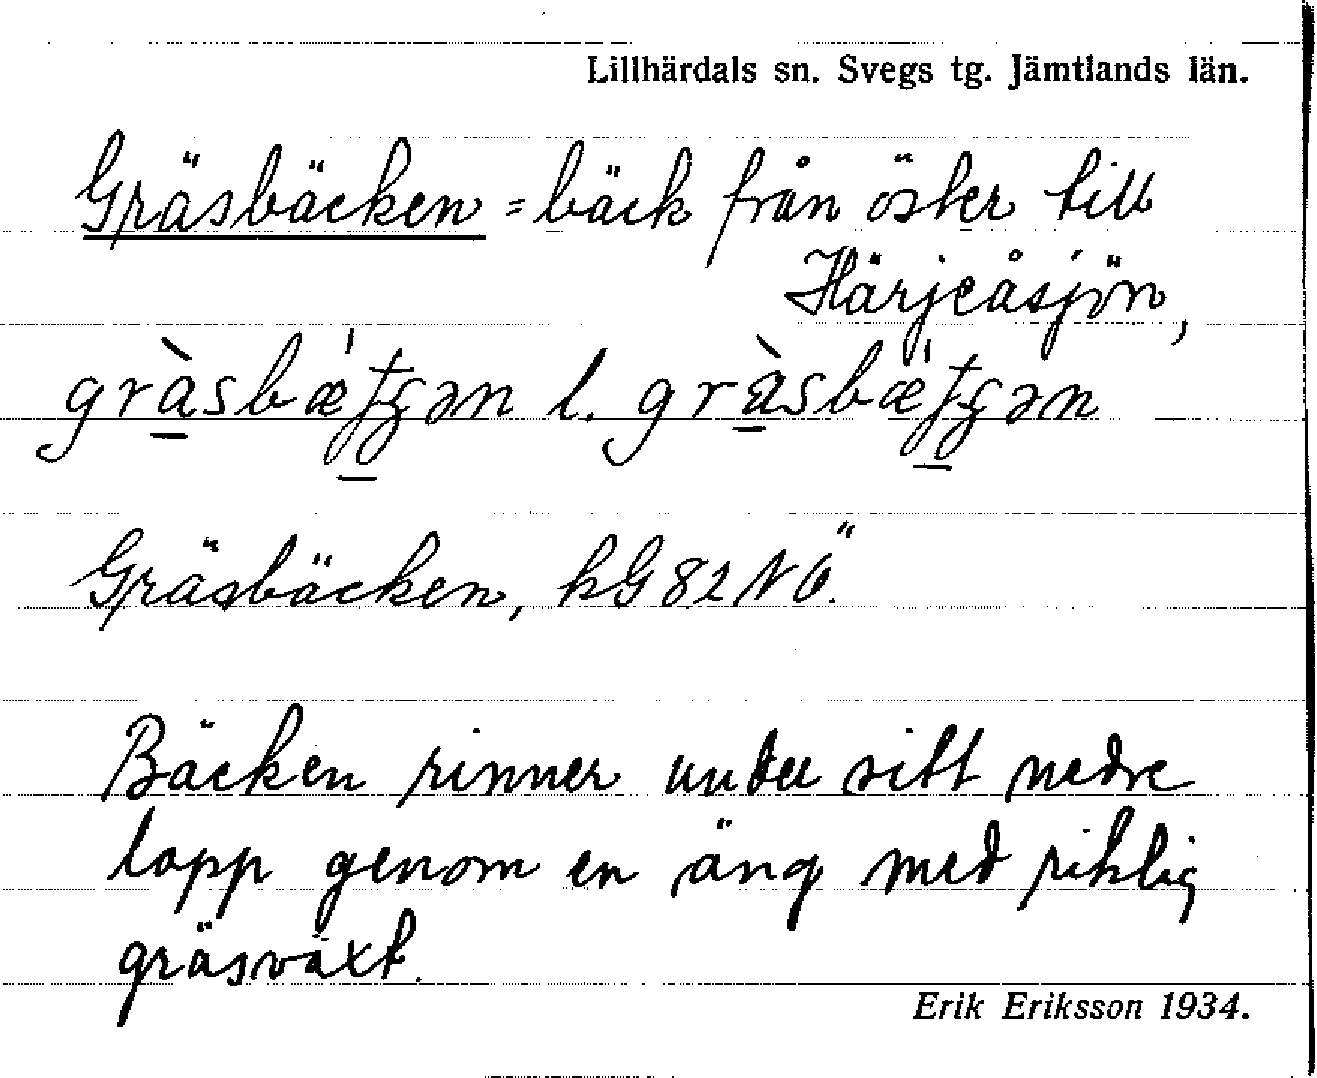 Lillhärdals sn. Svegs tg. Jämtlands län.
Gräsbäcken = bäck från öster till
Härjeåsjön,
l.
Gräsbäcken, kG 82 NÖ.
Bäcken rinner under sitt nedre
lopp genom en äng med riklig
gräsväxt.
Erik Eriksson 1934.